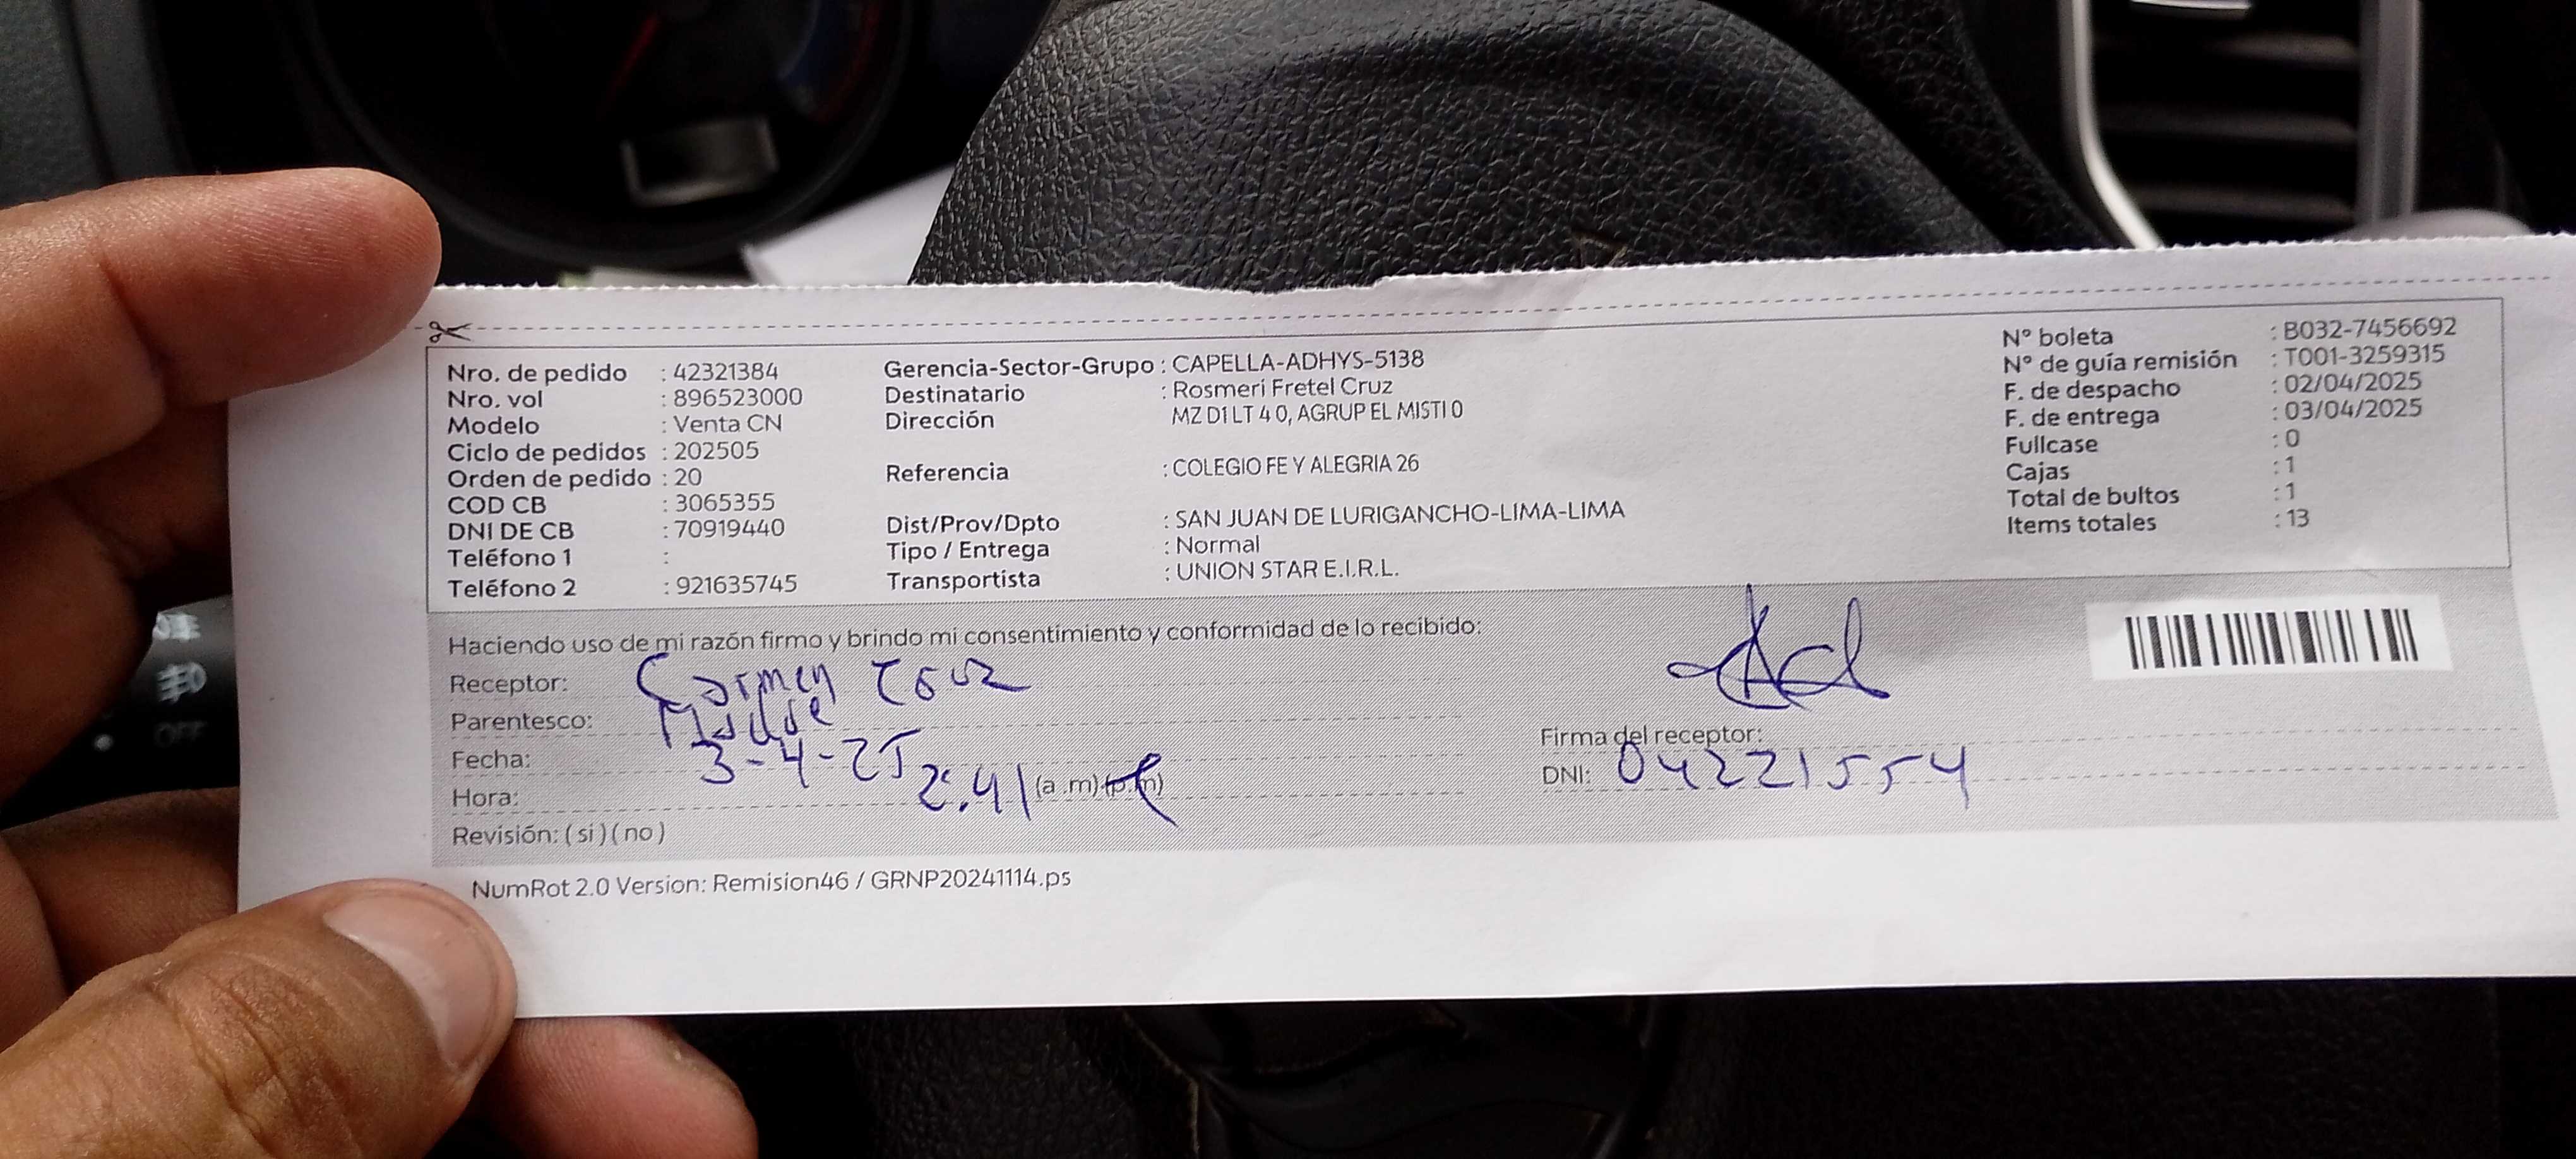 Nro. de pedido : 42321384
Nro. vol : 896523000
Modelo : Venta CN
Ciclo de pedidos : 202505
Orden de pedido : 20
COD CB : 3065355
DNI DE CB : 70919440
Teléfono 1 :
Teléfono 2 : 921635745
Gerencia-Sector-Grupo : CAPELLA-ADHYS-5138
Destinatario : Rosmeri Fretel Cruz
Dirección MZ D1 LT 4 0, AGRUP EL MISTI 0
Referencia : COLEGIO FE Y ALEGRIA 26
Dist/Prov/Dpto : SAN JUAN DE LURIGANCHO-LIMA-LIMA
Tipo / Entrega : Normal
Transportista : UNION STAR E.I.R.L.
N° boleta : B032-7456692
N° de guía remisión : T001-3259315
F. de despacho : 02/04/2025
F. de entrega : 03/04/2025
Fullcase : 0
Cajas : 1
Total de bultos : 1
Items totales : 13
Haciendo uso de mi razón firmo y brindo mi consentimiento y conformidad de lo recibido:
Receptor: Carmen Cruz
Parentesco: Madre
Fecha: 3-4-25
Hora: 2.41 (a.m) (p.m)
Revisión: (si) (no)
Firma del receptor:
DNI: 04221554
NumRot 2.0 Version: Remision46 / GRNP20241114.ps
OFF